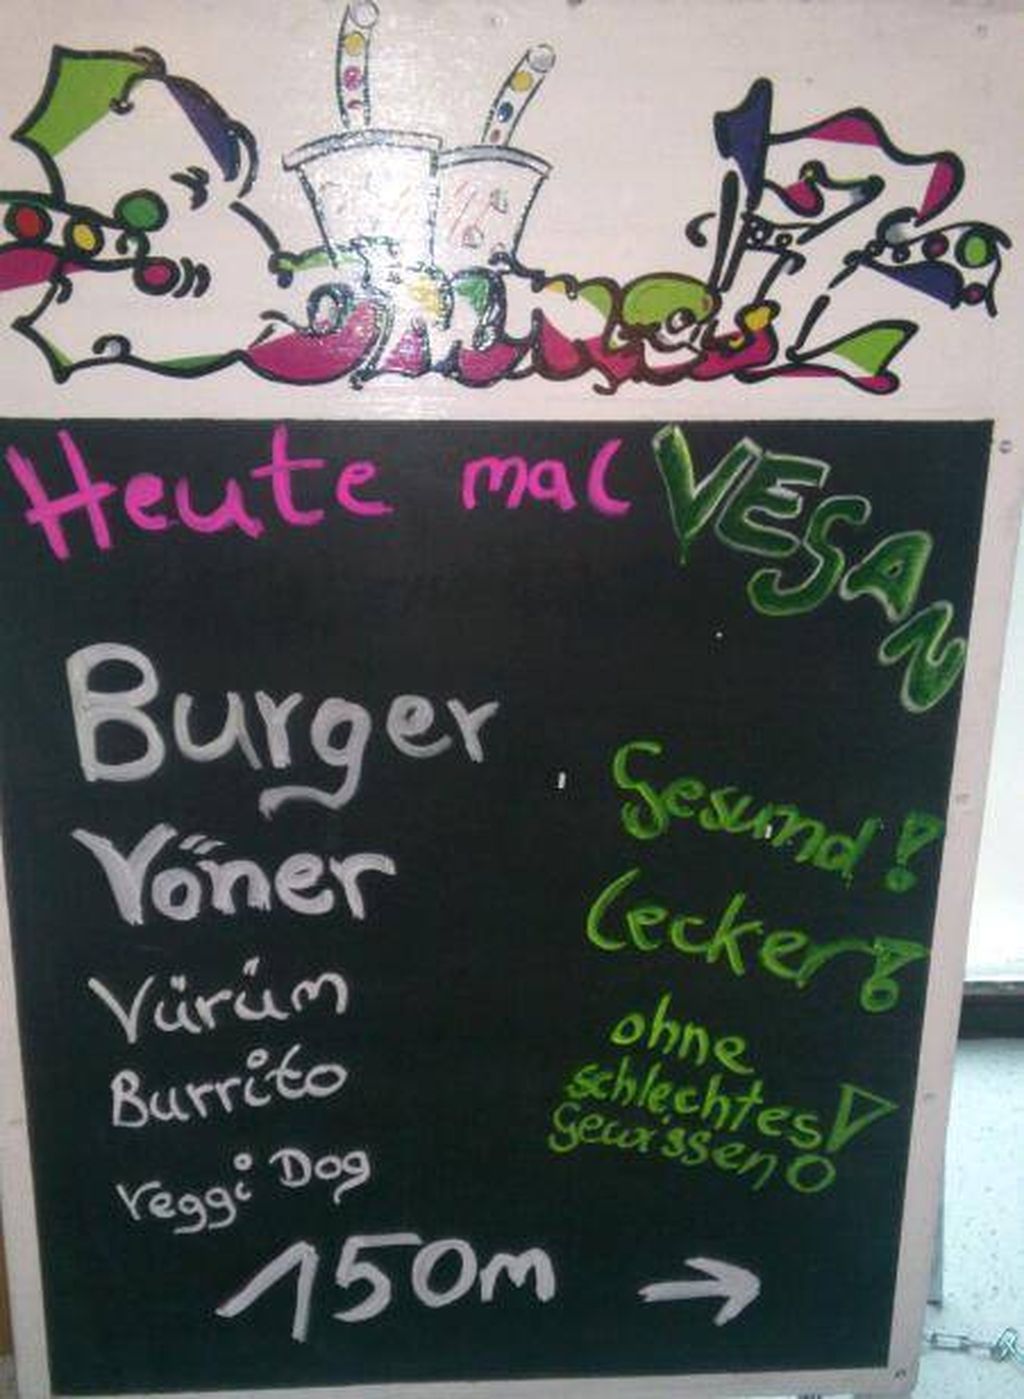 Heute mal VEGAN
Burger
Vöner
Vürüm
Burrito
Veggi Dog
Gesund!
Lecker!
ohne
schlechtes
Gewissen!
150m →